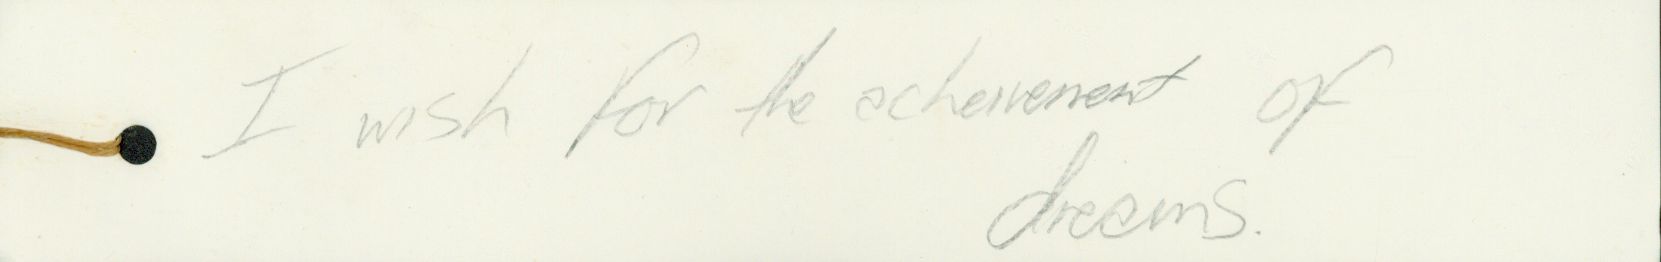 I wish for the acheivement of
dreams.